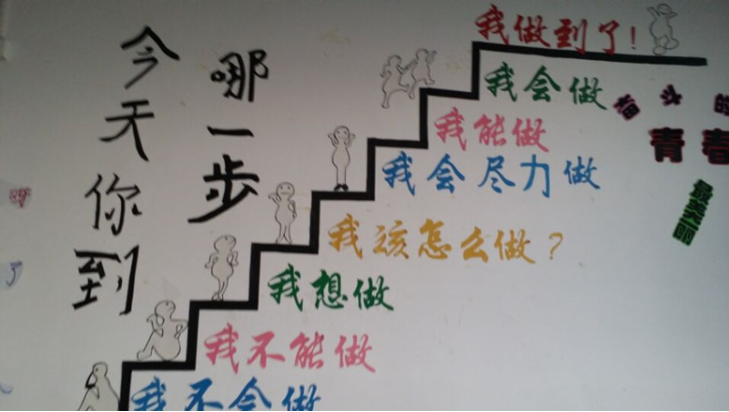 今天你到
哪一步
我做到了!
我会做
我能做
我会尽力做
我该怎么做?
我想做
我不能做
我不会做
奋斗的
青春
最美丽